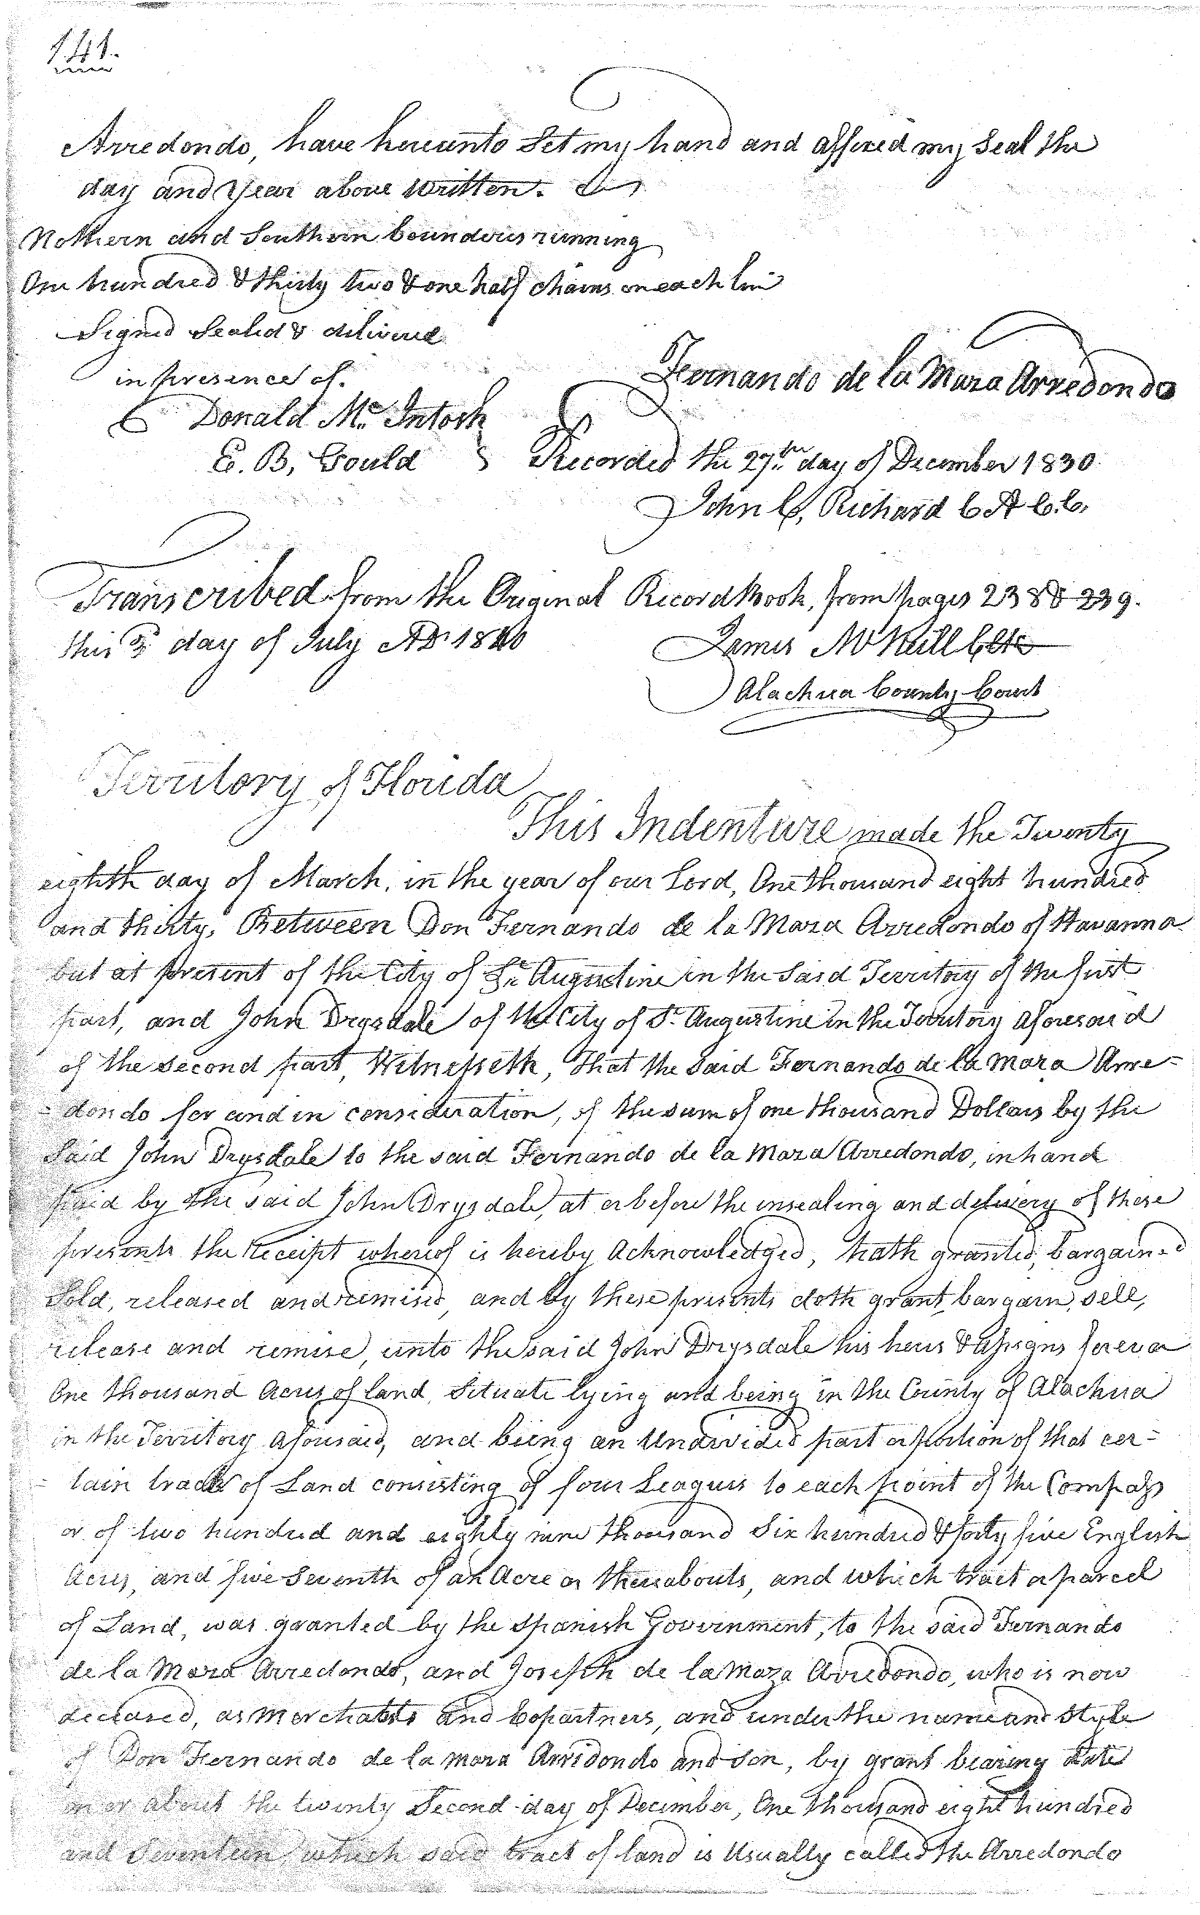 141.
Arredondo, have hereunto Set my hand and affixed my Seal the
day and Year above written.
Nothern and Southern bounderies running
One hundred & thirty two & one half chains on each lin
Signed Sealed & delivered
in presence of.
Fernando de la Maza Arredondo
Donald Mc. Intosh
E. B, Gould
Recorded the 27th day of December 1830
John C, Richard C A C. C.
Transcribed from the Original Record Book, from pages 238 & 239.
this 3d day of July AD. 1840
James McNeill Clk
Alachua County Court
Territory of Florida
This Indenture made the Twenty
eighth day of March, in the year of our Lord, One thousand eight hundred
and thirty, Between Don Fernando de la Maza Arredondo of Havanna
but at present of the City of St. Augustine in the Said Territory of the first
part, and John Drysdale of the City of St. Augustine in the Territory aforesaid
of the second part, Witnesseth, That the Said Fernando de la Maza Arre=
=dondo for and in consideration, of the sum of one thousand Dollars by the
Said John Drysdale to the said Fernando de la Maza Arredondo, in hand
paid by the said John Drysdale, at or before the insealing and delivery of these
presents the Receipt whereof is hereby acknowledged, hath granted, bargained
Sold, released and remised, and by these presents doth grant, bargain, sell,
release and remise, unto the said John Drysdale his heirs & assigns forever
One thousand Acres of land, Situate lying and being in the County of Alachua
in the Territory aforesaid, and being an Undivided part or portion of that cer=
=tain tract of Land consisting of four Leagues to each point of the Compass
or of two hundred and eighty nine thousand Six hundred & forty five English
Acres, and five Seventh of an Acre or thereabouts, and which tract or parcel
of Land, was granted by the Spanish Government, to the said Fernando
de la Maza Arredondo, and Joseph de la Maza Arredondo, who is now
deceased, as Merchants and Copartners, and under the name and Style
of Don Fernando de la Maza Arredondo and Son, by grant bearing date
on or about the twenty Second day of December, One thousand eight hundred
and Seventeen, which said tract of land is Usually called the Arredondo